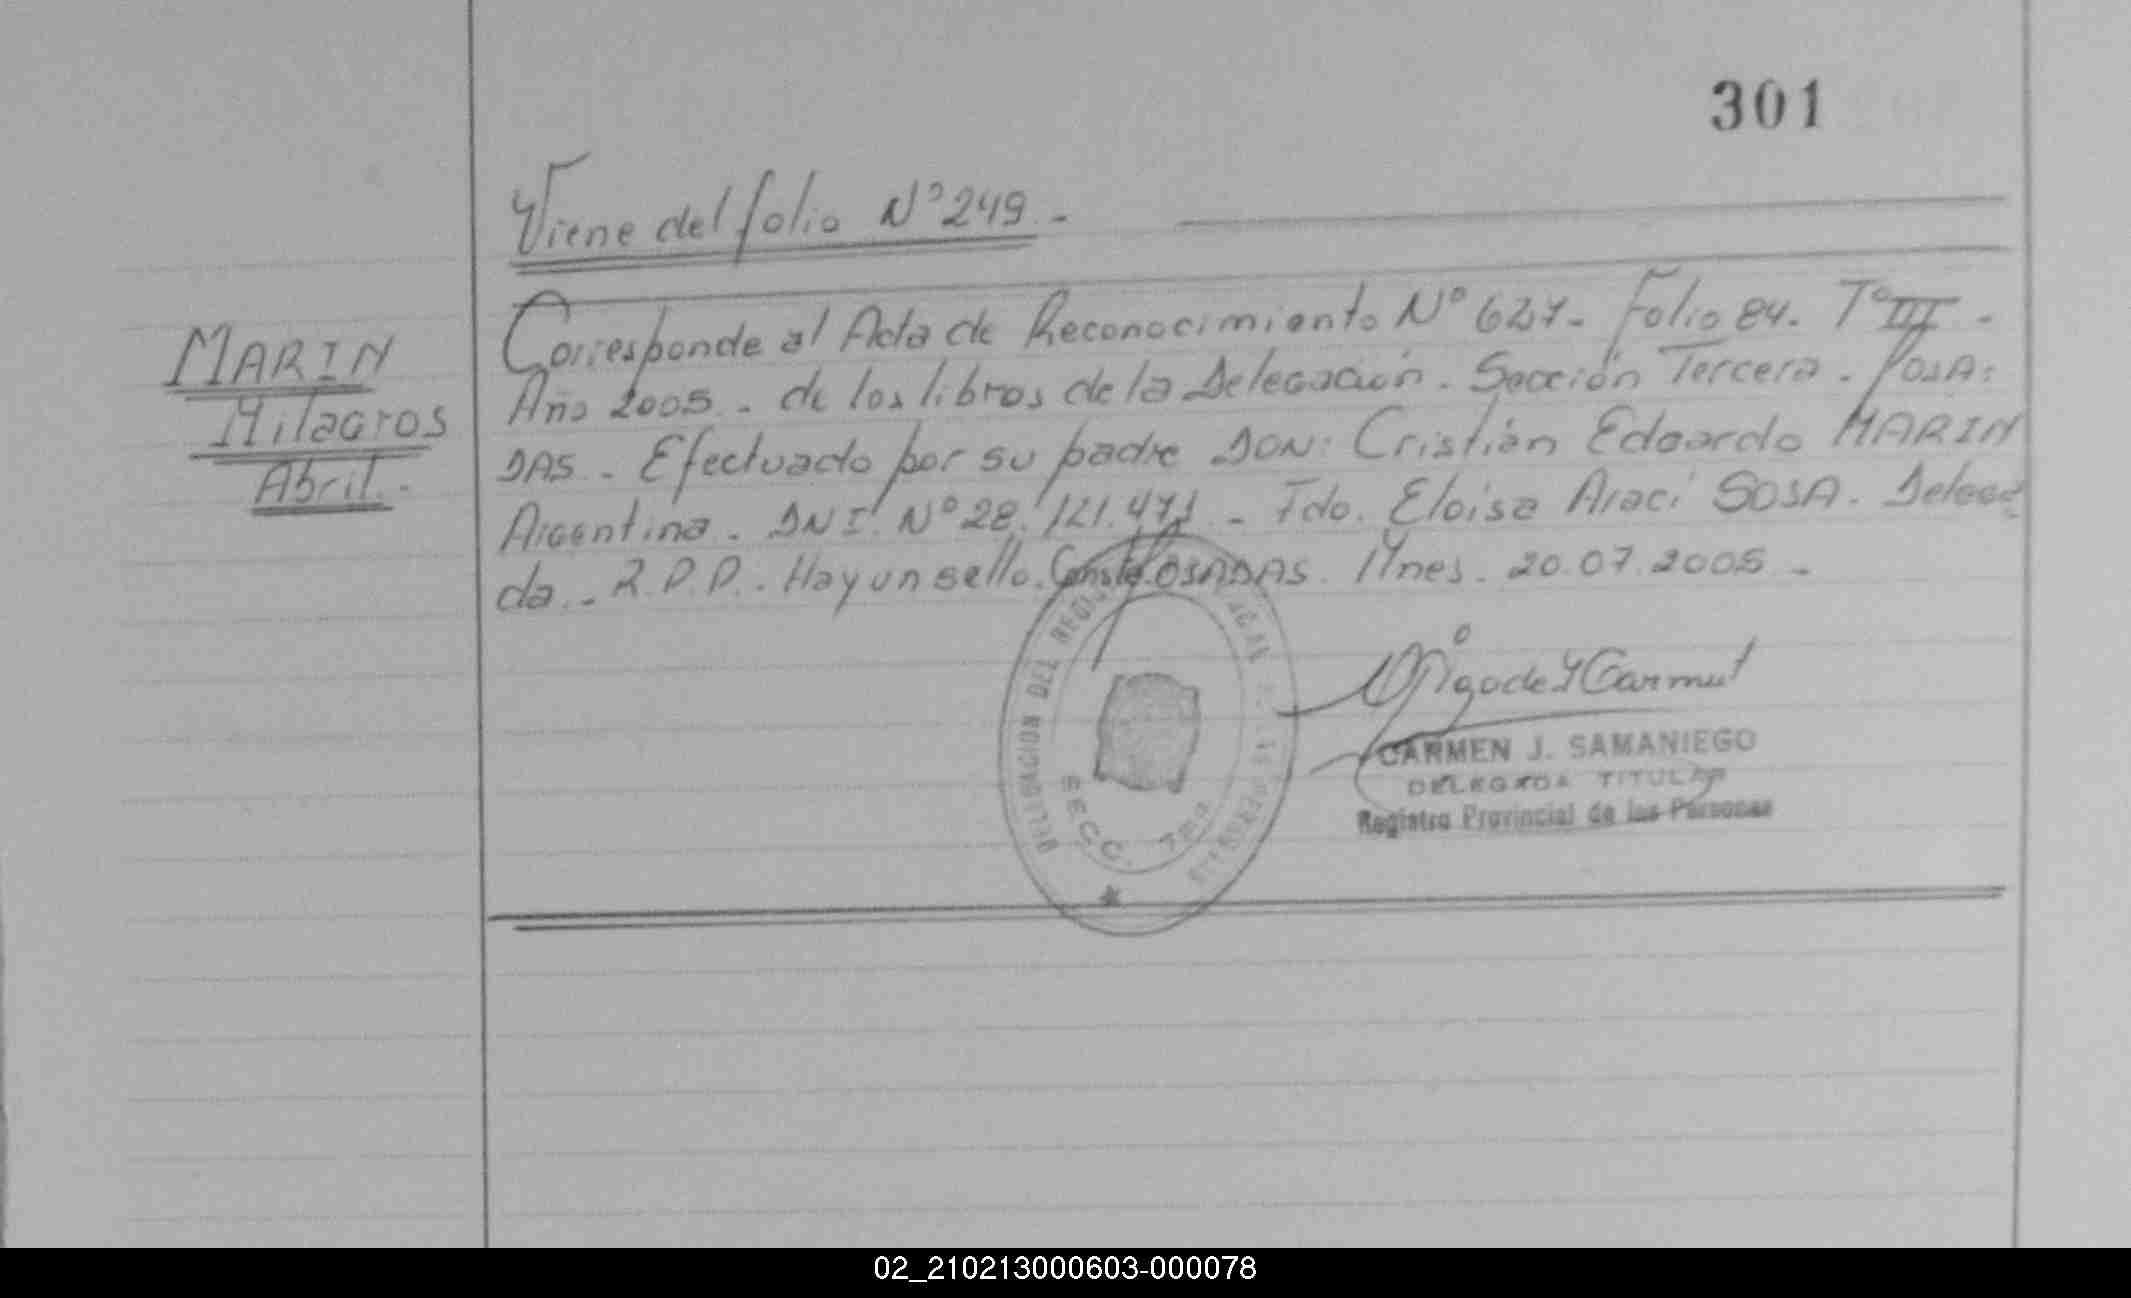 301
Viene del folio Nº 249.-
MARIN
Milagros
Abril.-
Corresponde al Acta de Reconocimiento Nº 627- Folio 84. Tº III -
Año 2005 - de los libros de la Delegación. Sección Tercera. POSA:
DAS.- Efectuado por su padre DON: Cristián Eduardo MARIN
Argentino. DNI. Nº 28.121.471 - Fdo. Eloisa Araci SOSA. Delega
da.- R.P.P.- Hay un sello. Conste. POSADAS. Mnes. 20.07.2005 -
DELEGACION DEL
SECC.
CARMEN J. SAMANIEGO
DELEGADA TITULAR
Registro Provincial de las Personas
02_210213000603-000078